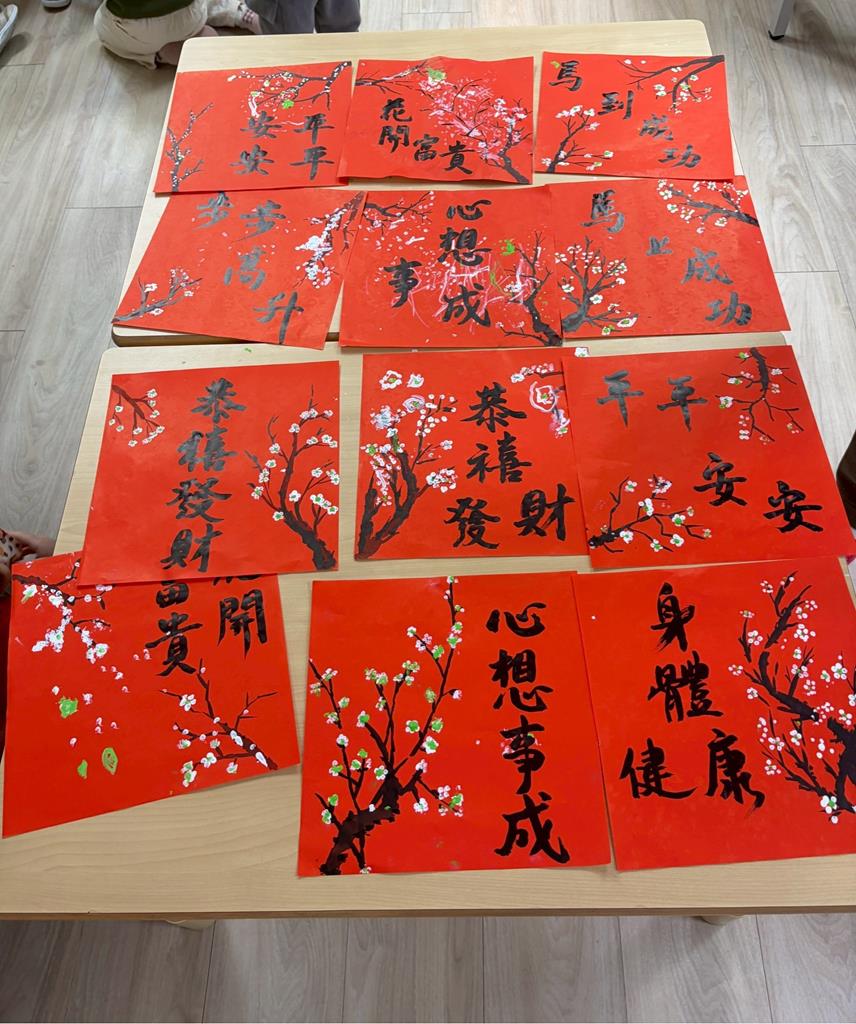 平平
安安
花開
富貴
馬到成功
步步高升
心想事成
馬上成功
恭禧發財
恭禧發財
平平安安
花開
富貴
心想事成
身體健康